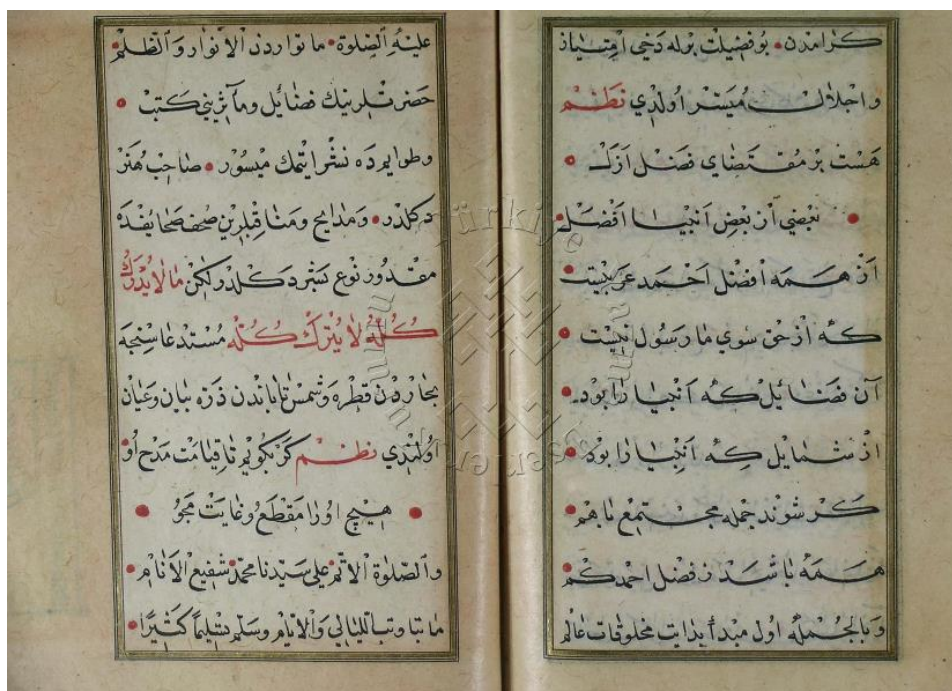 كرامدن • بو فضيلت بوله دخي امتياز
واجلال ميسّر اولدي نظم
هست بر مقتضاي فضل ازل •
• بعضي از بعض انبيا افضل
از همه افضل احمد عربيست •
كه از حق سوي ما رسول نبيست •
آن فضائل كه انبيا را بود •
از شمايل كه انبيا را بود •
كر شوند جمله مجتمع باهم •
همه باشد ز فضل احمد كم •
وبالجمله اول مبدأ بدايت مخلوقات عالم
عليه الصلوة • ما توارد الانوار والظلم •
حضرتلرينك فضايل ومآثريني كتب •
وطواميرده نشر ايتمك ميسور • صاحب هنر
دكلدر • ومدايح ومناقبلرين صحف صحايفده
مقدور نوع بشر دكلدر لكن ما لا يدرك
كله لا يترك كله مستدعاسنجه
بحاردن قطره وشمس تاباندن ذره بيان وعيان
اولندي نظم كر بكويم تا قيامت مدح او •
• هيچ اورا مقطع وغايت مجو •
والصلوة الاتم علي سيدنا محمد شفيع الانام •
ما تتابعت الليالي والايام وسلم تسليما كثيرا •
Türkiye
Yazma
Eserler
Kurumu